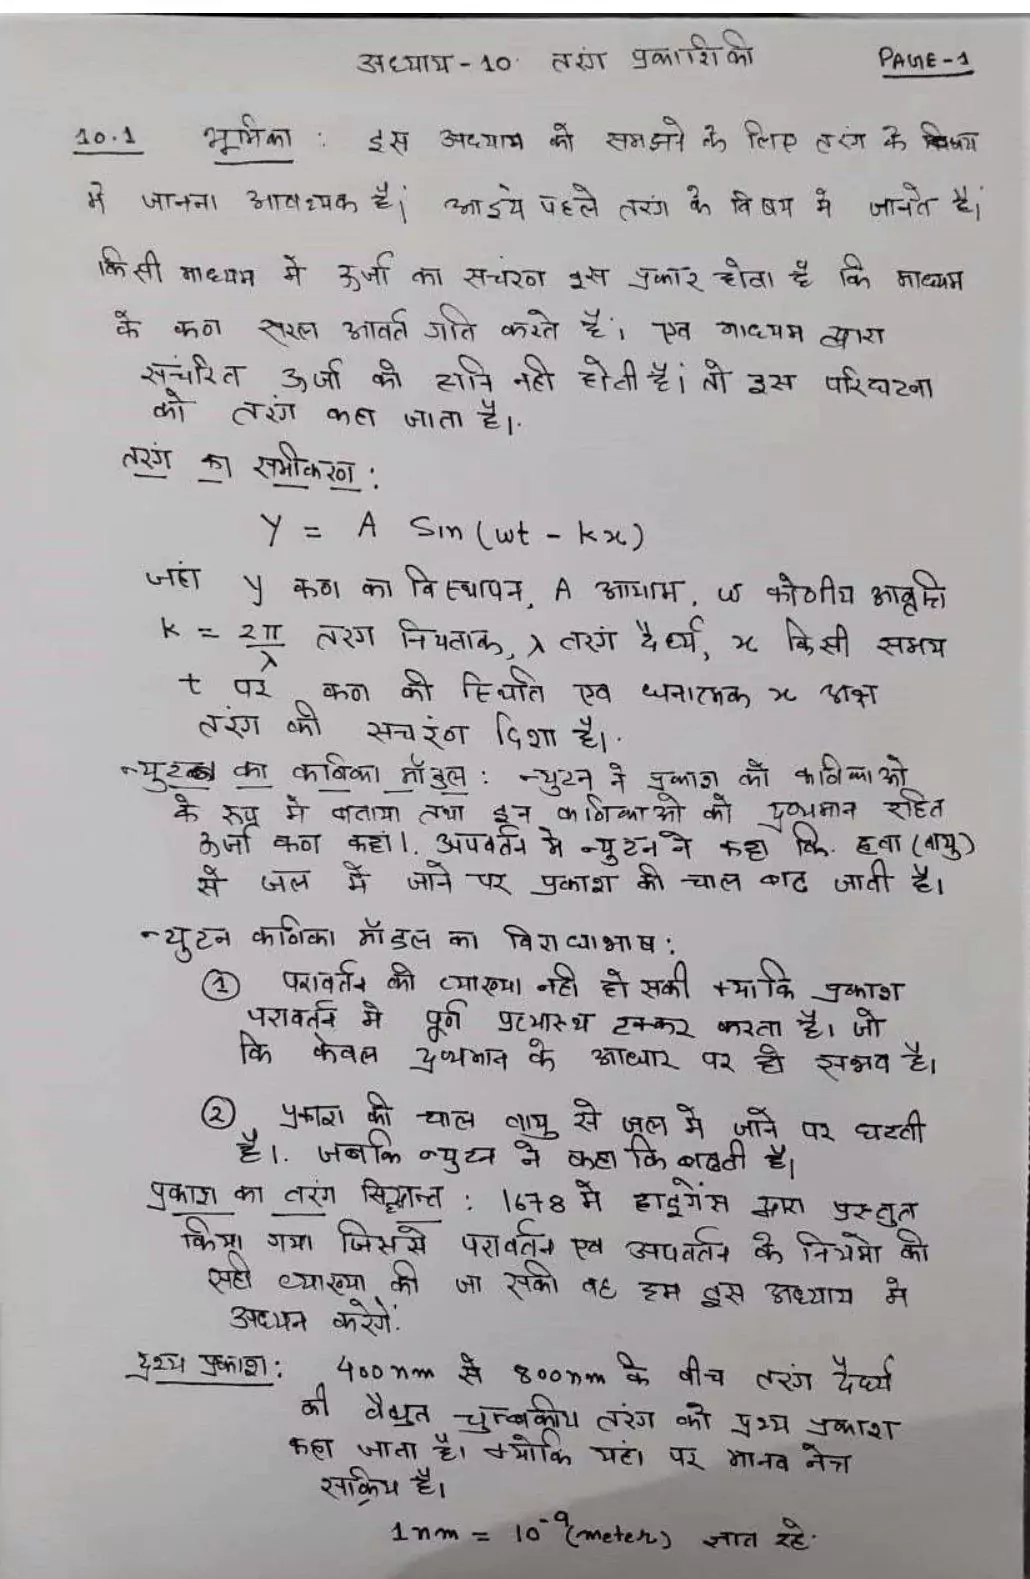 अध्याय-10. तरंग प्रकाशिकी PAGE-1
10.1 भूमिका : इस अध्याय को समझने के लिए तरंग के विषय
मे जानना आवश्यक है। आइये पहले तरंग के विषय मे जानते है।
किसी माध्यम मे ऊर्जा का सचंरण इस प्रकार होता है कि माध्यम
के कण सरल आवर्त गति करते है। एव माध्यम द्वारा
संचरित ऊर्जा की हानि नही होती है। तो इस परिघटना
को तरंग कहा जाता है।
तरंग का समीकरण :
Y = A Sin(wt - kx)
जहां y कण का विस्थापन, A आयाम, ω कोणीय आवृत्ति
k = 2π/λ तरंग नियताक, λ तरंग दैर्ध्य, x किसी समय
t पर कण की स्थिति एव धनात्मक x अक्ष
तरंग की सचरंण दिशा है।
न्युटन का कणिका मॉडुल : न्युटन ने प्रकाश को कणिकाओ
के रूप मे बताया तथा इन कणिकाओ को द्रव्यमान रहित
ऊर्जा कण कहां। अपवर्तन मे न्युटन ने कहा कि. हवा (वायु)
से जल में जाने पर प्रकाश की चाल बाढ जाती है।
न्युटन कणिका मॉडल का विराधाभाष :
① परावर्तन की व्याख्या नही हो सकी क्याकि प्रकाश
परावर्तन मे पूर्ण प्रत्यास्थ टक्कर करता है। जो
कि केवल द्रव्यमान के आधार पर ही संभव है।
② प्रकाश की चाल वायु से जल मे जाने पर घटती
है।. जबकि न्युटन ने कहा कि बढती है।
प्रकाश का तरंग सिद्धान्त : 1678 मे हाइगेंस द्वारा प्रस्तुत
किया गया जिससे परावर्तन एव अपवर्तन के नियमो की
सही व्याख्या की जा सकी वह हम इस अध्याय मे
अध्यन करेगें.
दृश्य प्रकाश : 400nm से 800nm के बीच तरंग दैर्ध्य
की वैधुत चुम्बकीय तरंग को दृश्य प्रकाश
कहा जाता है। क्योकि यहां पर मानव नेत्र
सक्रिय है।
1nm = 10⁻⁹(meter) ज्ञात रहे.